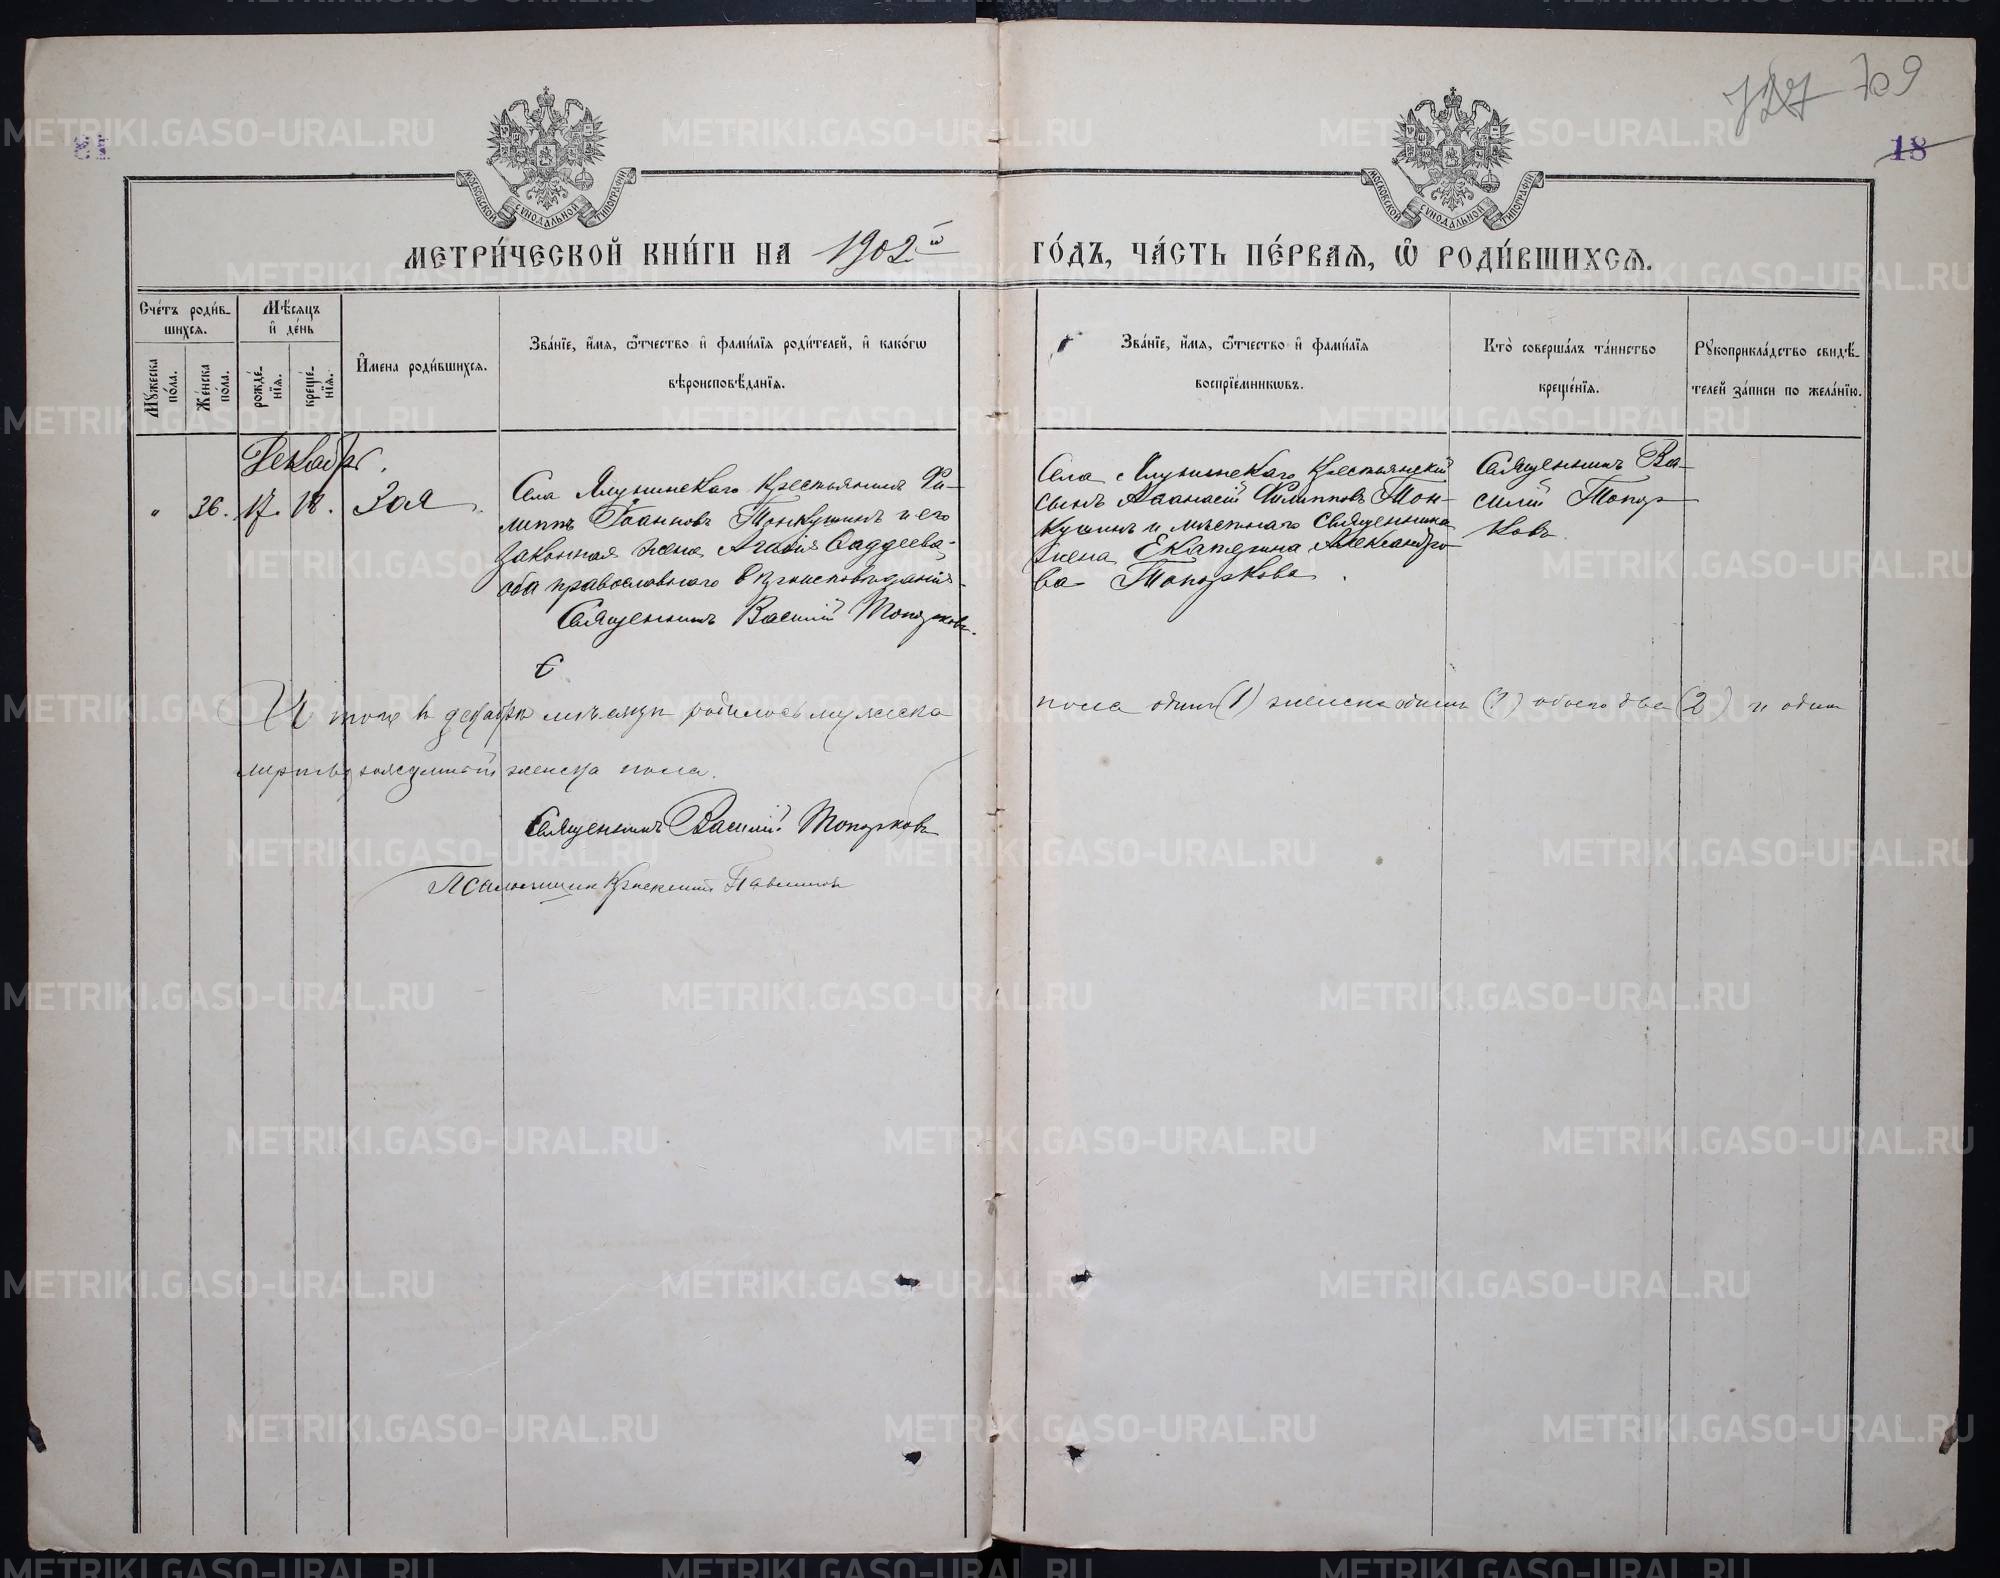 727 709
18
МОСКОВСКОЙ СѴНОДАЛЬНОЙ ТИПОГРАФІИ
МОСКОВСКОЙ СѴНОДАЛЬНОЙ ТИПОГРАФІИ
МЕТРИ́ЧЕСКОЙ КНИ́ГИ НА 1902й ГО́ДЪ, ЧА́СТЬ ПЕ́РВАѦ, Ѽ РОДИ́ВШИХСѦ.
Сче́тъ роди́в-
шихсѧ.
Мꙋжеска по́ла.
Же́нска по́ла.
Мѣ́сѧцъ
и҆ де́нь
рожде́-
нїѧ.
креще́-
нїѧ.
И҆мена роди́вшихсѧ.
Зва́нїе, и҆́мѧ, ѻ҆́тчество и҆ фами́лїѧ роди́телей, и҆ како́гѡ
вѣроисповѣ́данїѧ.
Зва́нїе, и҆́мѧ, ѻ҆́тчество и҆ фами́лїѧ
воспрїе́мникѡвъ.
Кто̀ соверша́лъ та́инство
креще́нїѧ.
Рꙋкоприкла́дство свидѣ́-
телей за́писи по жела́нїю.
Декабрь.
" 36. 17. 18. Зоя
Села Ялунинскаго Крестьянинъ Фи-
липпъ Іоанновъ Тонкушинъ и его
законная жена Агафія Фаддеева,
оба православнаго вѣроисповѣданія.
Священникъ Василій Топорковъ.
Села Ялунинскаго Крестьянскій
сынъ Аѳанасій Филипповъ Тон-
кушинъ и мѣстнаго Священника
жена Екатерина Александро-
ва Топоркова.
Священникъ Ва-
силій Топор-
ковъ
Итого въ декабрѣ мѣсяцѣ родилось мужеска пола одинъ (1) женска одинъ (1) обоего два (2) и одинъ
мертворожденный женска пола.
Священникъ Василій Топорковъ
Псаломщикъ Павлиновъ
METRIKI.GASO-URAL.RU